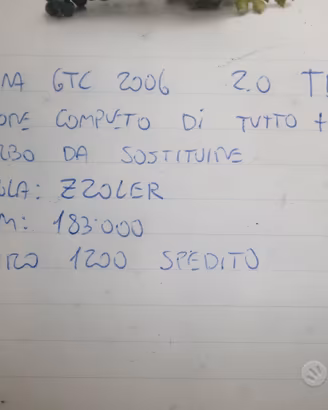 NA GTC 2006 2.0 T
ONE COMPLETO DI TUTTO +
RBO DA SOSTITUIRE
LA: ZZOLER
M: 183.000
IRO 1200 SPEDITO